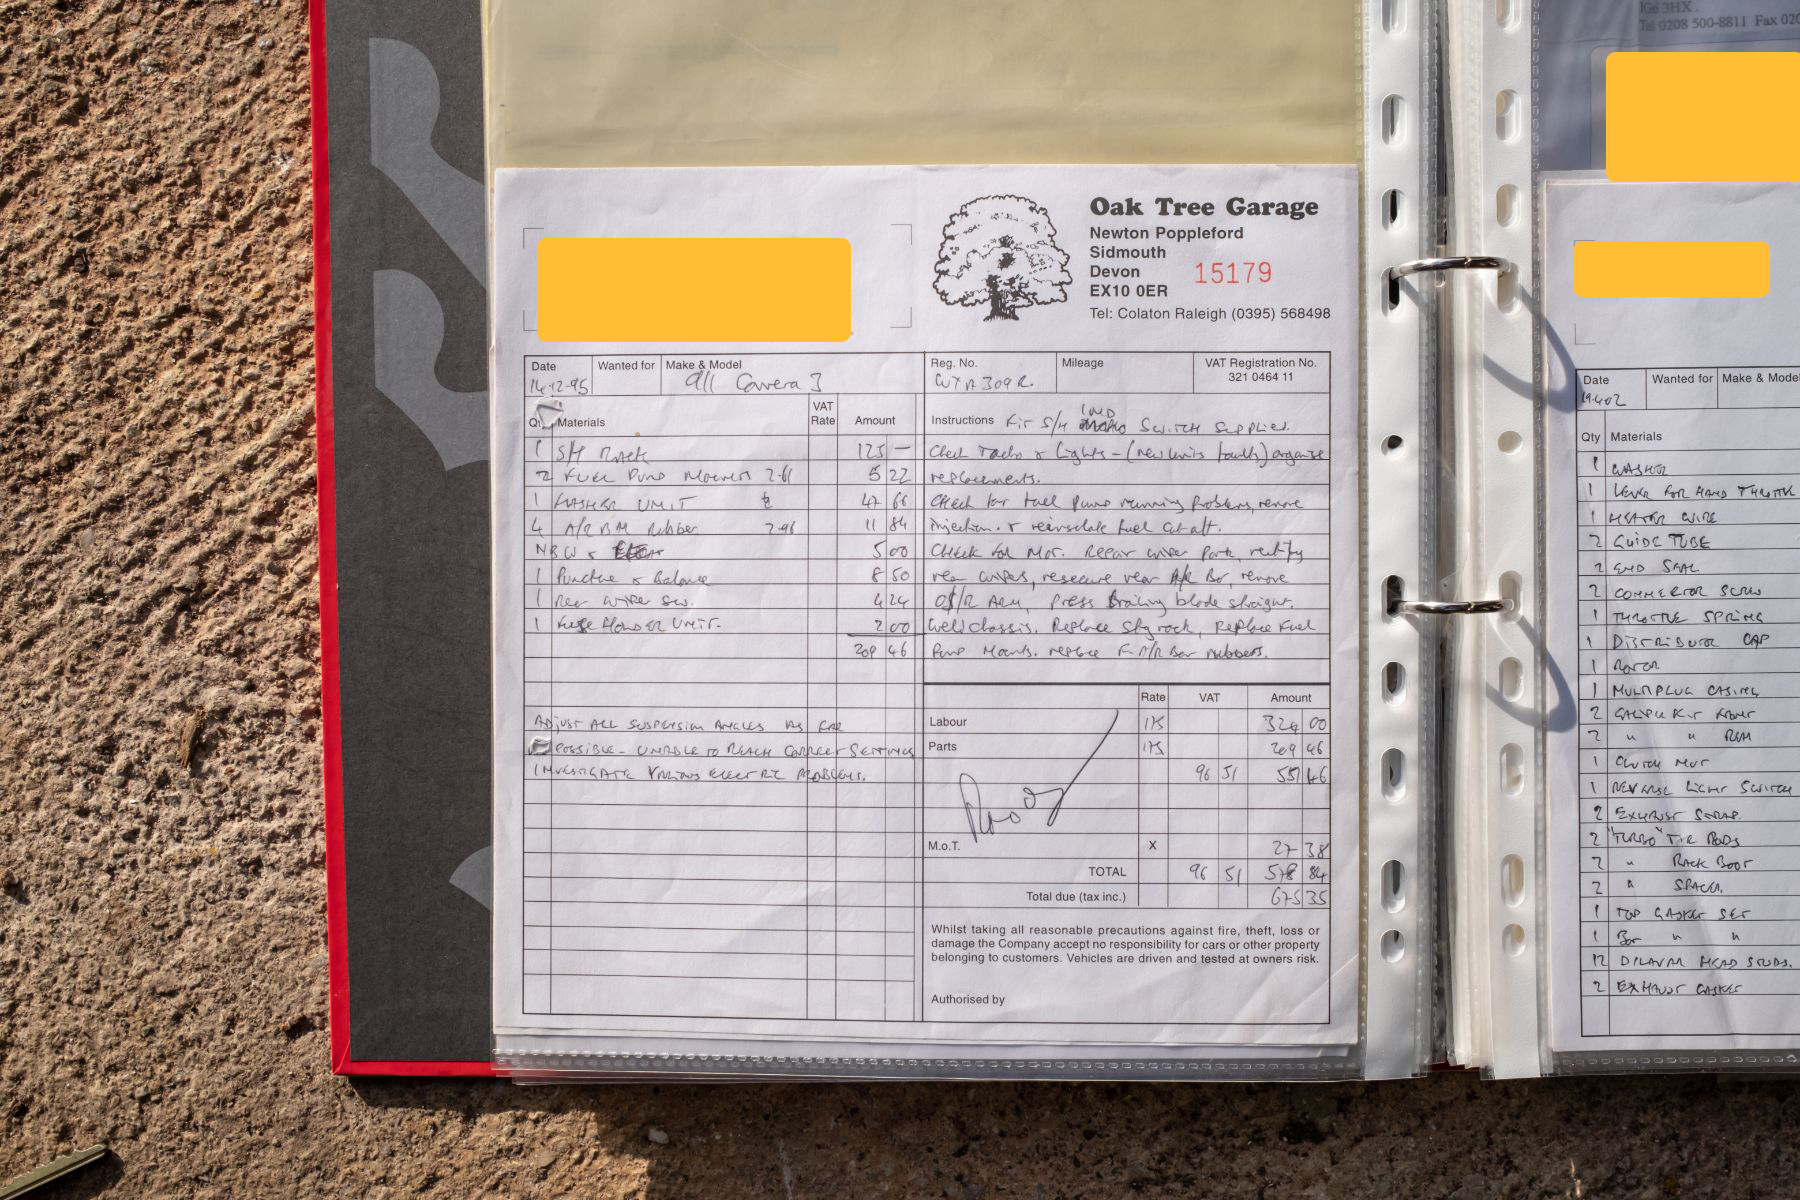 Oak Tree Garage
Newton Poppleford
Sidmouth
Devon
EX10 0ER
15179
Tel: Colaton Raleigh (0395) 568498
Date
14-12-95
Wanted for
Make & Model
911 Carrera 3
Reg. No.
Mileage
VAT Registration No.
321 0464 11
Qty Materials
VAT Rate
Amount
1 S/H Rack 125 —
2 Fuel Pump 5 22
1 UNIT 47 66
4 A/R Bar Rubber 2-96 11 84
5 00
1 Puncture & Balance 8 50
1 Rear Wiper Sw. 4 24
1 Fuse Holder Unit. 2 00
209 46
ADJUST ALL SUSPENSION ANGLES AS FAR
POSSIBLE - UNABLE TO REACH CORRECT SETTINGS
INVESTIGATE VARIOUS ELECTRIC PROBLEMS.
Instructions Fit S/H IND Switch Supplied.
Check Tacho & Lights - (new units faulty) organise
replacements.
Check for fuel pump running problem, remove
injection & reinsulate fuel cut off.
Check for Mot. Repair wiper park, rectify
rear wipers, resecure rear A/R Bar, remove
O/S/R Arm, press trailing blade straight.
Weld chassis. Replace rack, Replace Fuel
Pump Mounts. replace F. A/R Bar rubbers.
Rate
VAT
Amount
Labour 324 00
Parts 209 46
96 51
M.o.T. X 27 38
TOTAL 96 51 84
Total due (tax inc.) 675 35
Whilst taking all reasonable precautions against fire, theft, loss or
damage the Company accept no responsibility for cars or other property
belonging to customers. Vehicles are driven and tested at owners risk.
Authorised by
IG6 3HX.
Tel 0208 500-8811 Fax 020
Date
Wanted for
Make & Model
Qty Materials
1 WASHER
1 LEVER FOR HAND THROTTLE
1 HEATER WIRE
2 GUIDE TUBE
2 END SEAL
2 CONNECTOR SCREW
1 THROTTLE SPRING
1 DISTRIBUTOR CAP
1 ROTOR
1 MULTIPLUG CASING
2 CALIPER KIT FRONT
2 " " REAR
1 CLUTCH NUT
1 REVERSE LIGHT SWITCH
2 EXHAUST STRAP
2 "TURBO" TIE RODS
2 " RACK BOOT
2 " SPACER
1 TOP GASKET SET
1 " "
12 DILAVAR HEAD STUDS.
2 EXHAUST GASKET